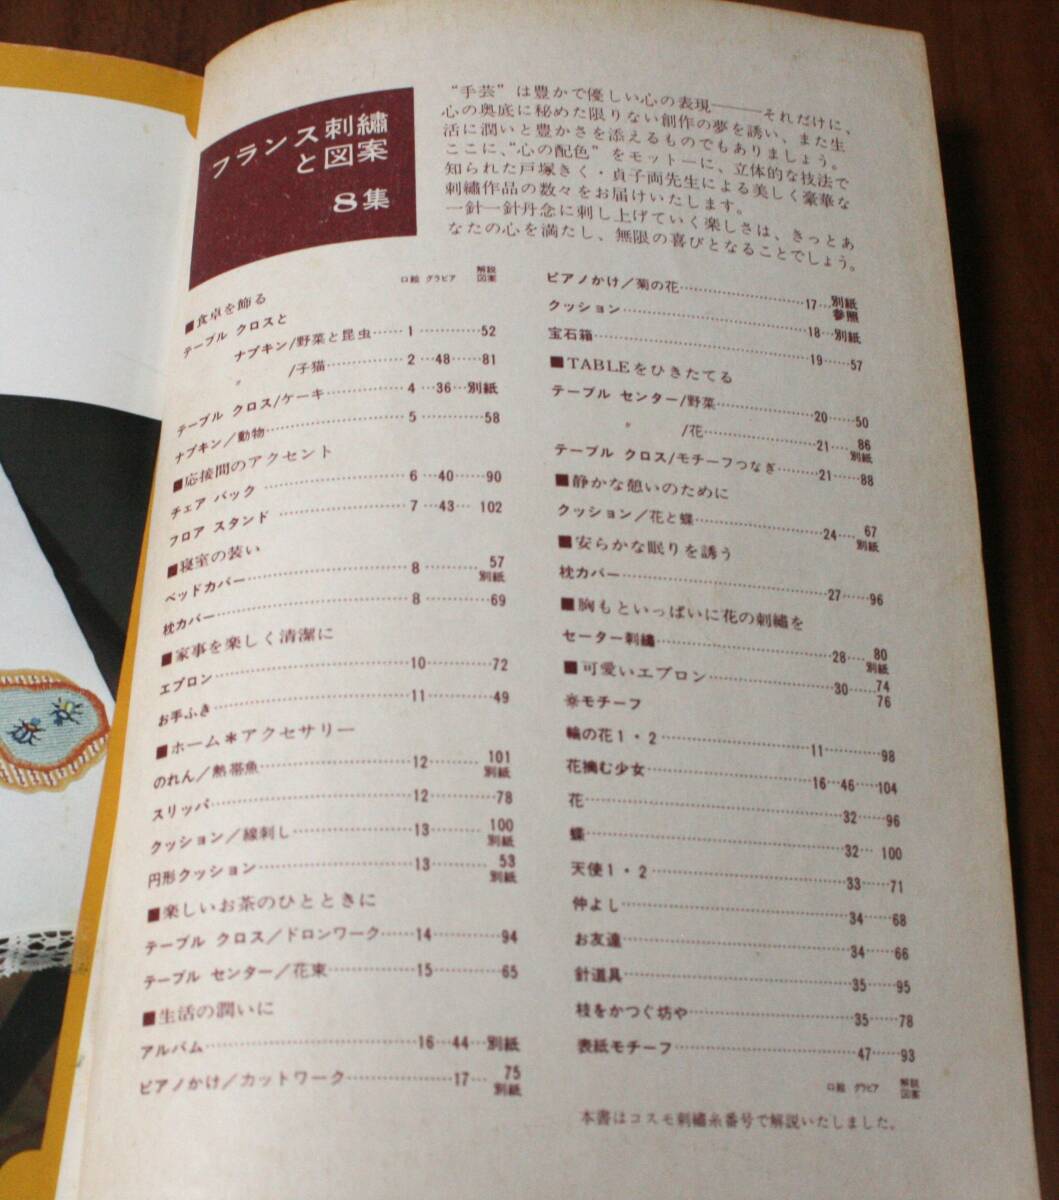 フランス刺繡
と図案
8集
“手芸”は豊かで優しい心の表現———それだけに、
心の奥底に秘めた限りない創作の夢を誘い、また生
活に潤いと豊かさを添えるものでもありましょう。
ここに、“心の配色”をモットーに、立体的な技法で
知られた戸塚きく・貞子両先生による美しく豪華な
刺繡作品の数々をお届けいたします。
一針一針丹念に刺し上げていく楽しさは、きっとあ
なたの心を満たし、無限の喜びとなることでしょう。
口絵 グラビア 解説図案
■食卓を飾る
テーブル クロスと
ナプキン/野菜と昆虫……1…………52
〃 /子猫…………2…48……81
テーブル クロス/ケーキ…………4…36…別紙
ナプキン/動物…………5…………58
■応接間のアクセント
チェア バック…………6…40……90
フロア スタンド…………7…43…102
■寝室の装い
ベッドカバー…………8………57別紙
枕カバー…………8…………69
■家事を楽しく清潔に
エプロン…………10…………72
お手ふき…………11…………49
■ホーム＊アクセサリー
のれん/熱帯魚…………12………101別紙
スリッパ…………12…………78
クッション/線刺し…………13………100別紙
円形クッション…………13………53別紙
■楽しいお茶のひとときに
テーブル クロス/ドロンワーク……14…………94
テーブル センター/花束…………15…………65
■生活の潤いに
アルバム…………16…44…別紙
ピアノかけ/カットワーク…………17…75別紙
ピアノかけ/菊の花…………17…別紙参照
クッション…………18…別紙
宝石箱…………19……57
■TABLEをひきたてる
テーブル センター/野菜…………20……50
〃 /花…………21……86別紙
テーブル クロス/モチーフつなぎ………21……88
■静かな憩いのために
クッション/花と蝶…………24……67別紙
■安らかな眠りを誘う
枕カバー…………27……96
■胸もといっぱいに花の刺繡を
セーター刺繡…………28……80別紙
■可愛いエプロン…………30……74
76
※モチーフ
輪の花1・2…………11………98
花摘む少女…………16…46…104
花…………32……96
蝶…………32…100
天使1・2…………33……71
仲よし…………34……68
お友達…………34……66
針道具…………35……95
枝をかつぐ坊や…………35……78
表紙モチーフ…………47……93
口絵 グラビア 解説図案
本書はコスモ刺繡糸番号で解説いたしました。